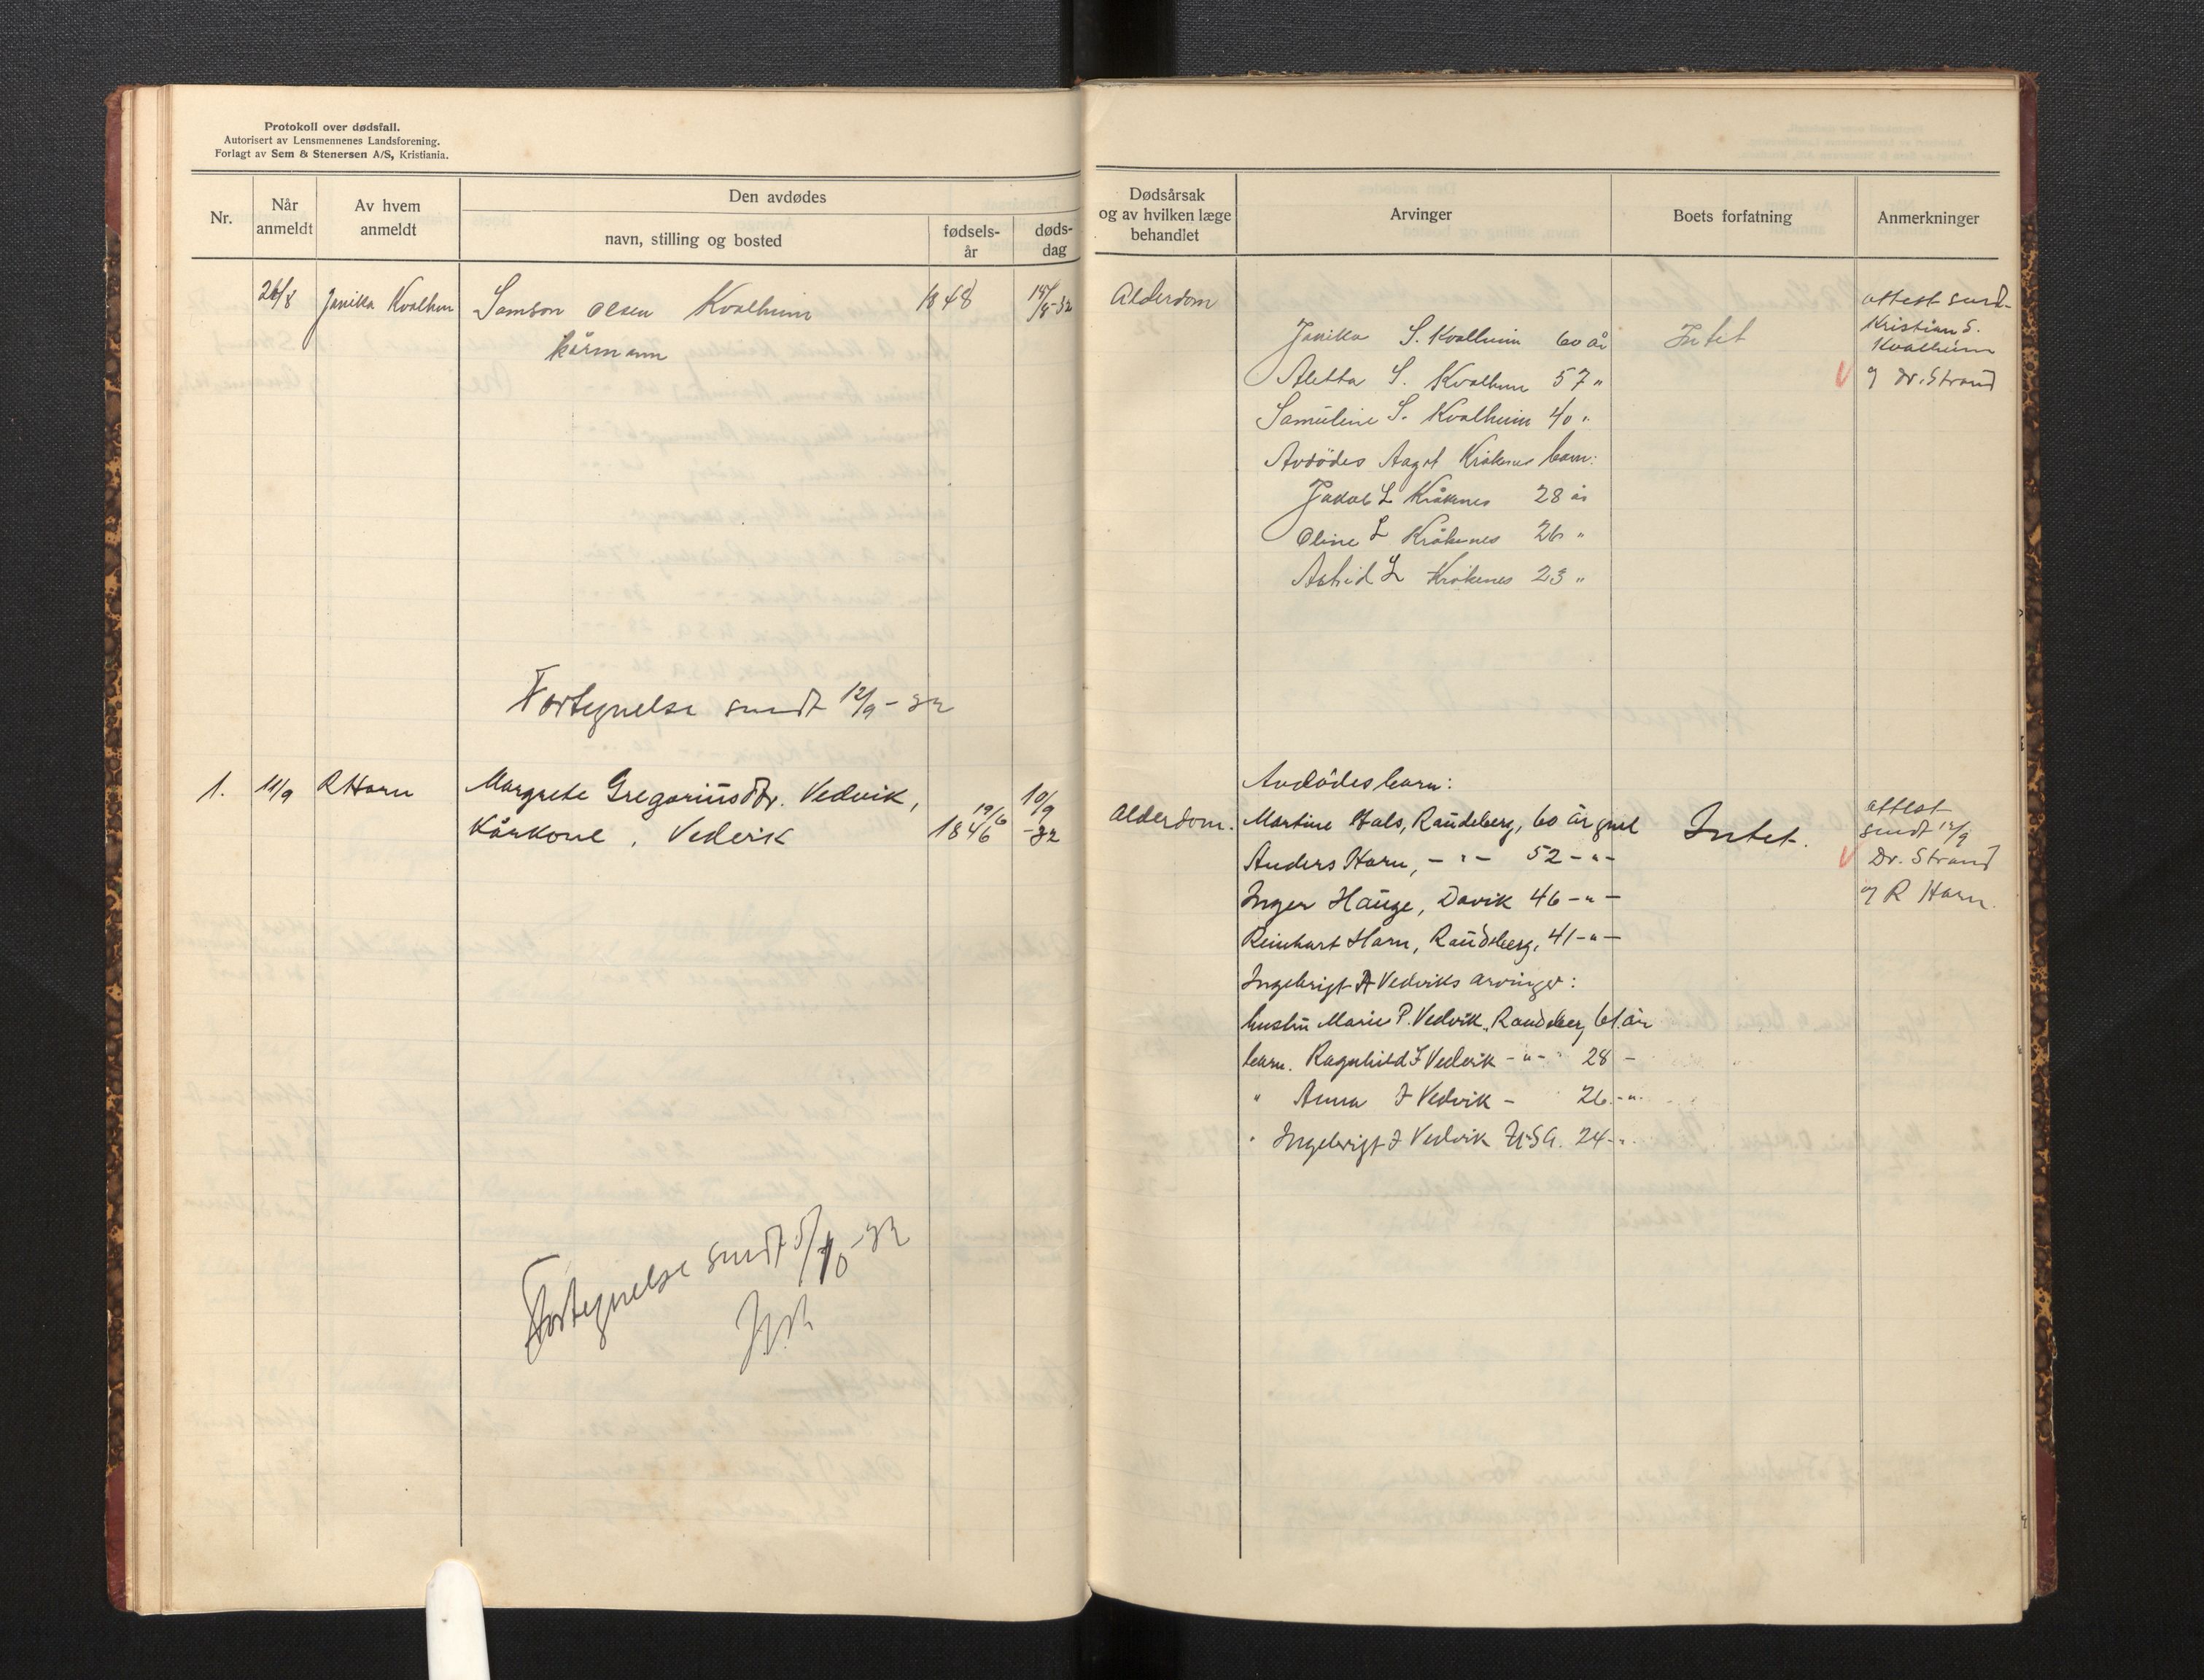 Protokoll over dødsfall.
Autorisert av Lensmennenes Landsforening.
Forlagt av Sem & Stenersen A/S, Kristiania.
Nr.
Når anmeldt
Av hvem anmeldt
Den avdødes
navn, stilling og bosted
fødsels-
år
døds-
dag
26/8 Janikka Kvalheim Samson Olsen Kvalheim 1848 /8-32
kårmann
Fortegnelse sendt 12/9-32
1. 11/9 R Harn Margrete Gregoriusdtr. Vedvik, 19/6 10/9
Kårkone, Vedvik 1846 -32
Fortegnelse sendt 5/10-32
Dødsårsak
og av hvilken læge
behandlet
Arvinger
Boets forfatning
Anmerkninger
Alderdom
Janikka S. Kvalheim 60 år
Aletta S. Kvalheim 57 "
Samuline S. Kvalheim 40 "
Avdödes Aagot Kråkenes barn:
Jakob L Kråkenes 28 år
Oline L Kråkenes 26 "
Astrid L Kråkenes 23 "
Intet
attest send.
Kristian S.
Kvalheim
og Dr. Strand
Avdödes barn:
Alderdom. Martine Hals, Raudeberg, 60 år
Anders Harn, - " - 52 - " -
Inger Hauge, Davik 46 - " -
Reinhart Harn, Raudeberg, 41 - " -
Ingebrigt A Vedviks arvinger:
hustru Marie P. Vedvik, Raudeberg 61 år
barn. Ragnhild I Vedvik - " - 28 -
" Anna I Vedvik - 26 - " -
" Ingebrigt I Vedvik USA. 24 - "
Intet.
attest
sendt 12/9
Dr. Strand
og R Harn.